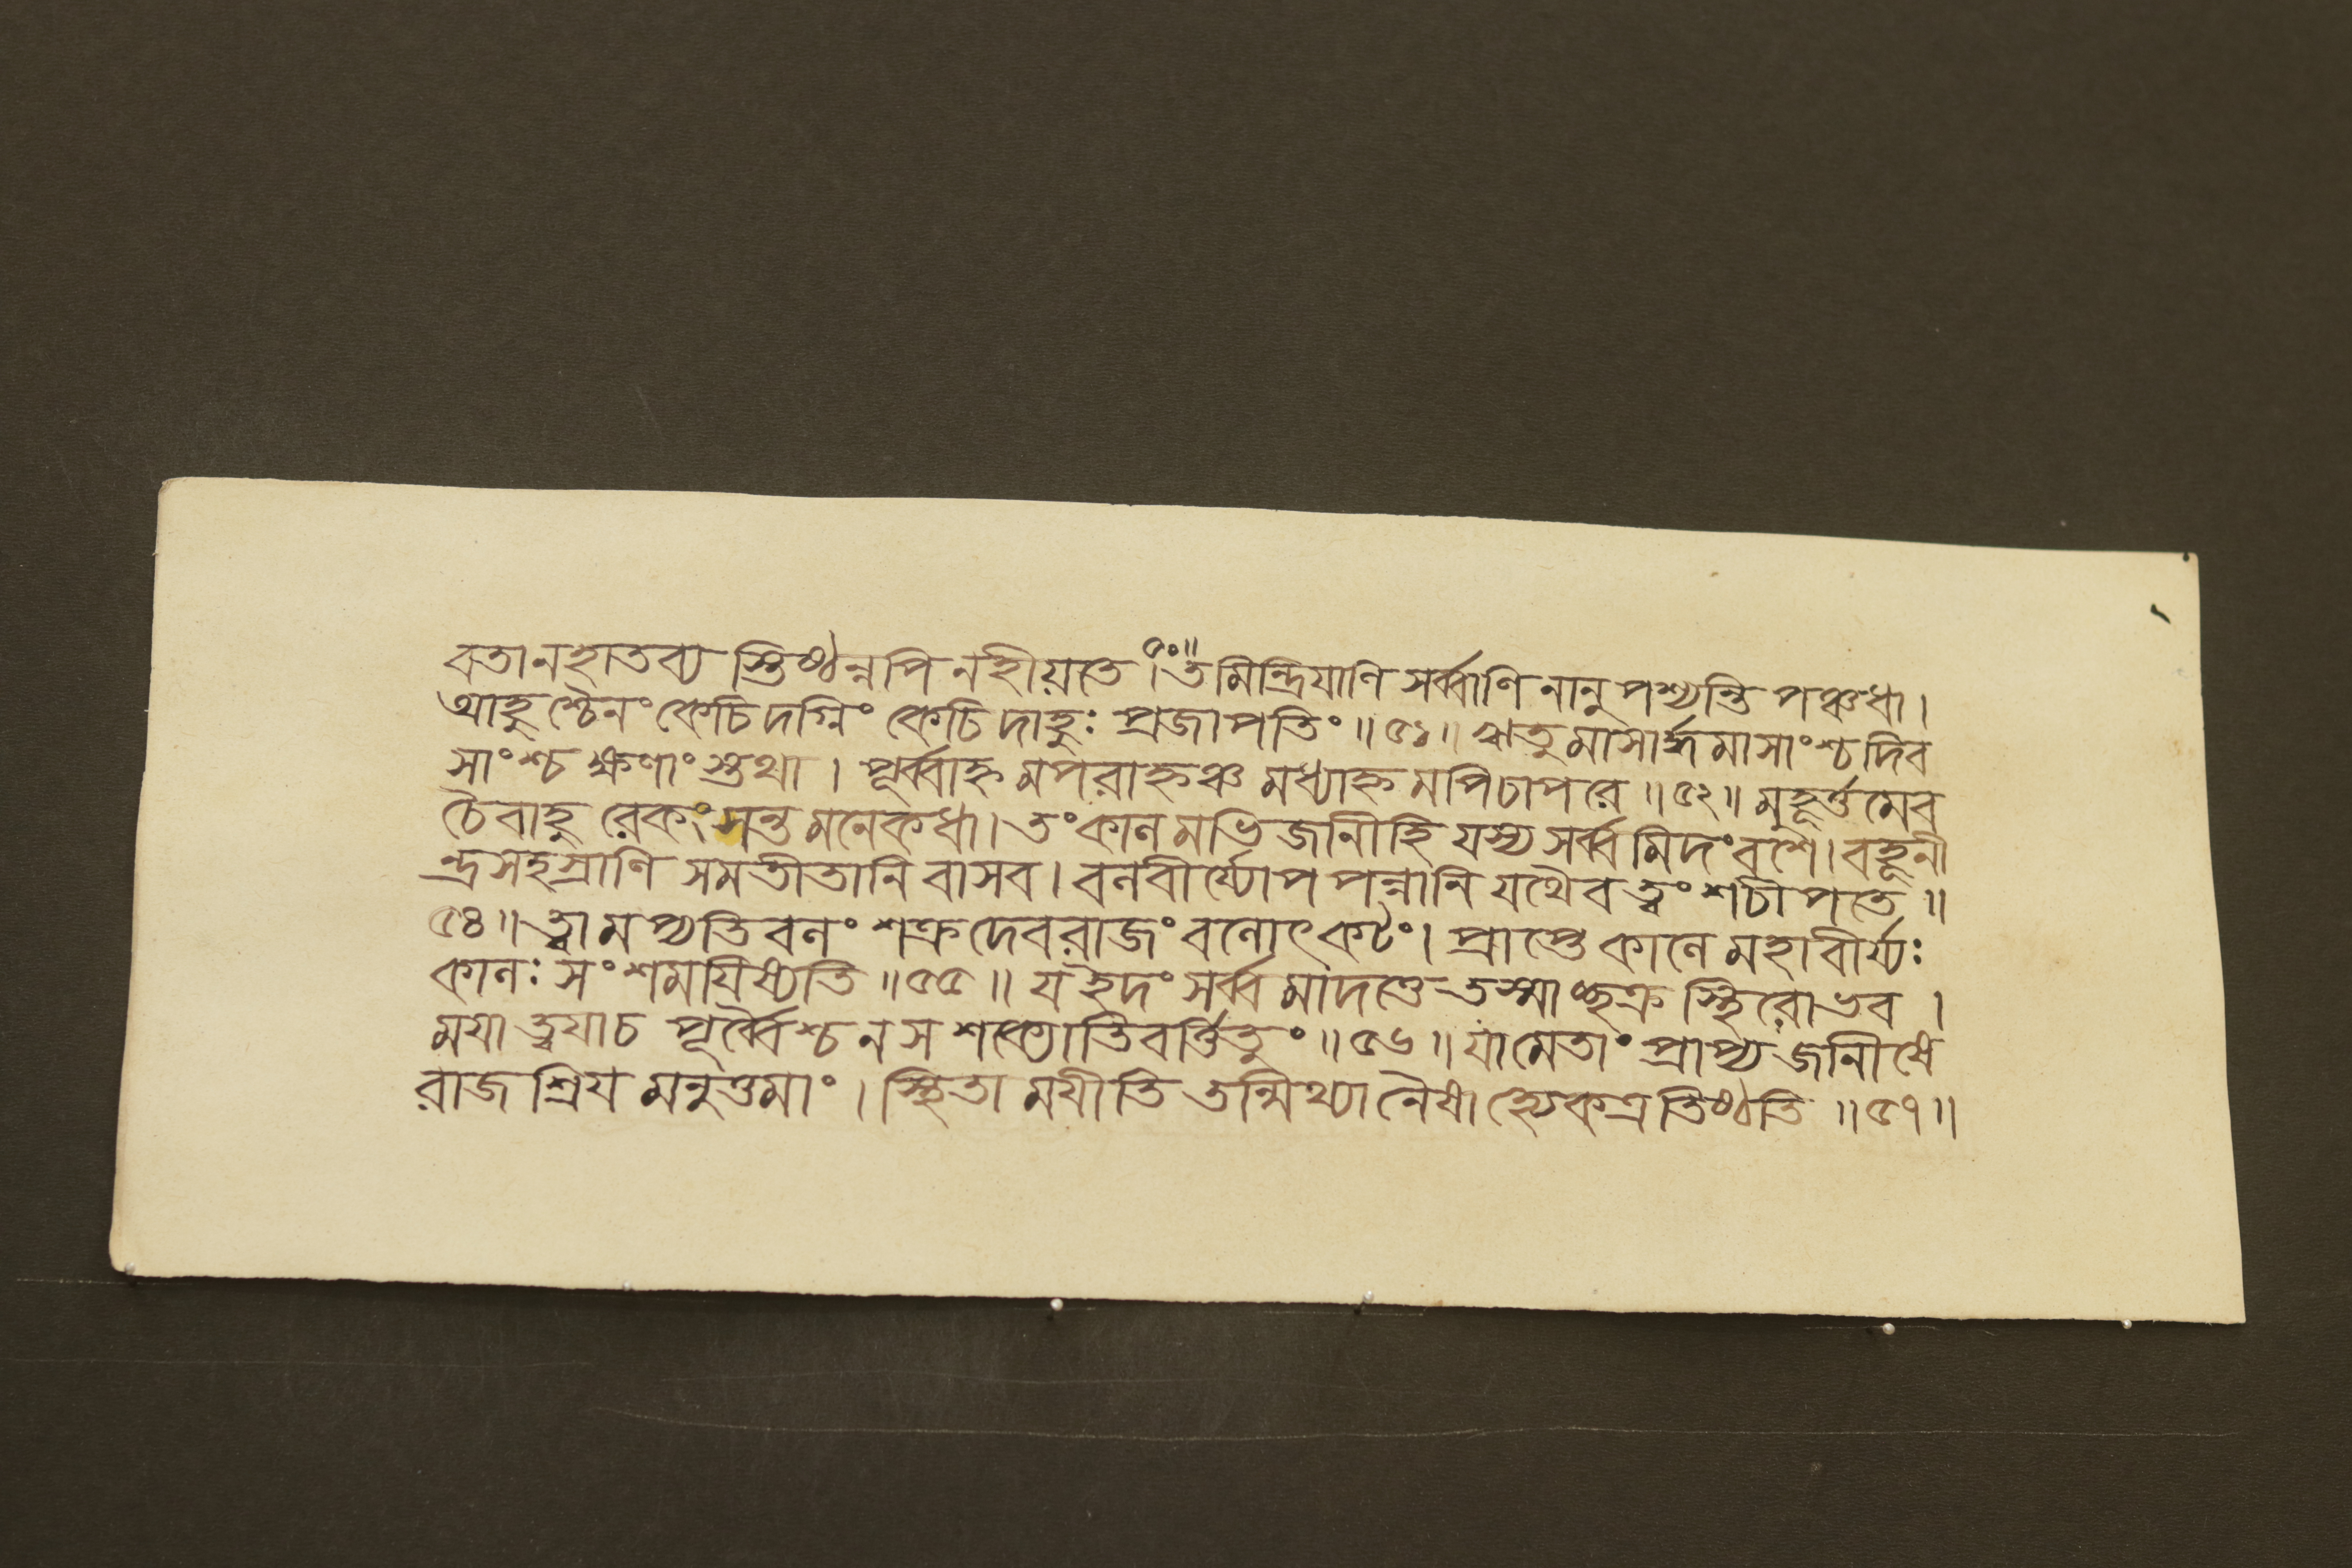 বতানহাতব্য স্তিষ্ঠন্নপি নহীয়তে ।৫০॥ তমিন্দ্রিযাণি সর্ব্বাণি নানু পশ্যন্তি পঞ্চধা ।
আহুশ্চৈনং কেচিদগ্নিং কেচিদাহুঃ প্রজাপতিং ॥৫১॥ ঋতু মাসার্দ্ধমাসাংশ্চ দিব
সাংশ্চ ক্ষণাংস্তথা । পূর্ব্বাহ্ন মপরাহ্নঞ্চ মধ্যাহ্ন মপিচাপরে ॥৫২॥ মুহূর্ত্তমেব
চৈবাহু রেকং সন্ত মনেকধা । তং কালমভিজানীহি যস্য সর্ব্বমিদং বশে । বহূনী
ন্দ্রসহস্রাণি সমতীতানি বাসব । বলবীর্য্যোপপন্নানি যথৈব ত্বং শচীপতে ॥
৫৪॥ ত্বামপ্যতিবলং শক্র দেবরাজং বলোৎকটং । প্রাপ্তে কালে মহাবীর্য্যঃ
কালঃ সংশমযিষ্যতি ॥৫৫॥ যইদং সর্ব্বমাদত্তে তস্মাচ্ছক্র স্থিরোভব ।
মযা ত্বযাচ পূর্ব্বৈশ্চ নস শক্যোতিবর্ত্তিতুং ॥৫৬॥ যামেতাং প্রাপ্য জানীষে
রাজশ্রিয মনুত্তমাং । স্থিতা মযীতি তন্মিথ্যা নৈষাহ্যেকত্রতিষ্ঠতি ॥৫৭॥